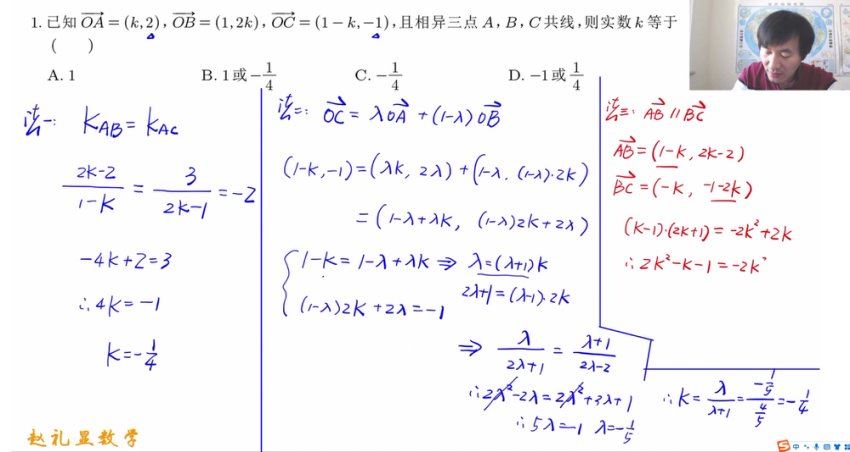 1. 已知 $\overrightarrow{OA}=(k,2)$, $\overrightarrow{OB}=(1,2k)$, $\overrightarrow{OC}=(1-k,-1)$,且相异三点 A,B,C 共线,则实数 k 等于
( )
A. 1 B. 1或$-\frac{1}{4}$ C. $-\frac{1}{4}$ D. -1或$\frac{1}{4}$
法一: $K_{AB}=K_{AC}$
$\frac{2k-2}{1-k}=\frac{3}{2k-1}=-2$
-4k+2=3
∴4k=-1
$k=-\frac{1}{4}$
法二: $\overrightarrow{OC}=λ\overrightarrow{OA}+(1-λ)\overrightarrow{OB}$
(1-k,-1)=(λk, 2λ)+(1-λ, (1-λ)·2k)
=(1-λ+λk, (1-λ)2k+2λ)
1-k=1-λ+λk ⇒ λ=(λ+1)k
(1-λ)2k+2λ=-1 2λ+1=(λ-1)·2k
⇒ $\frac{λ}{2λ+1}=\frac{λ+1}{2λ-2}$
∴2λ²-2λ=2λ²+3λ+1
∴5λ=-1 λ=$-\frac{1}{5}$
∴k=$\frac{λ}{λ+1}=\frac{-\frac{1}{5}}{\frac{4}{5}}=-\frac{1}{4}$
法三: $\overrightarrow{AB}$ // $\overrightarrow{BC}$
$\overrightarrow{AB}$=(1-k, 2k-2)
$\overrightarrow{BC}$=(-k, -1-2k)
(k-1)·(2k+1)=-2k²+2k
∴2k²-k-1=-2k²
赵礼显数学
S 中